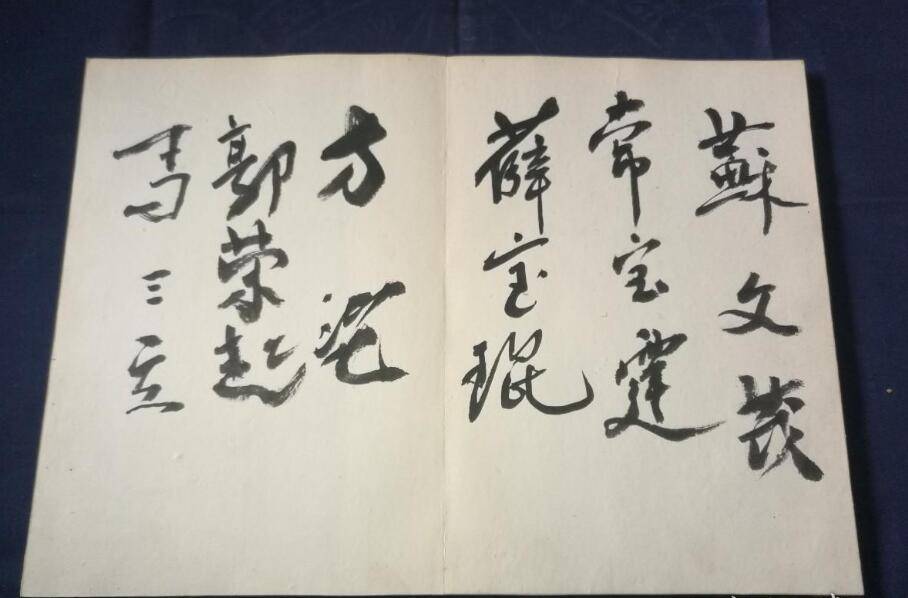 蘇文茂
常宝霆
薛宝琨
方
郭荣起
马三立